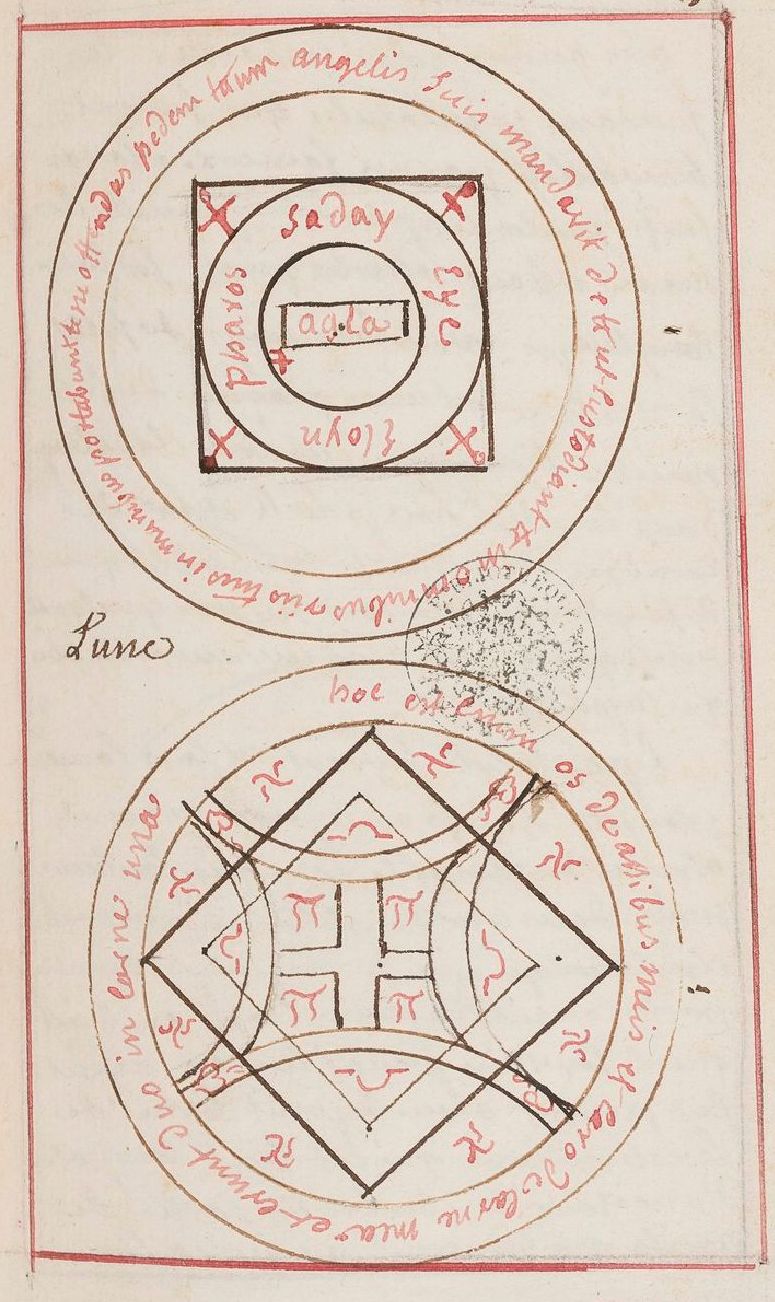 angelis suis mandavit de te ut custodiant te in omnibus viis tuis in manibus portabunt te ne offendas pedem tuum
saday
eye
Eloyn
pharos
agla
Lune
hoc est enim os de assibus meis et caro de carne mea et erunt duo in carne una